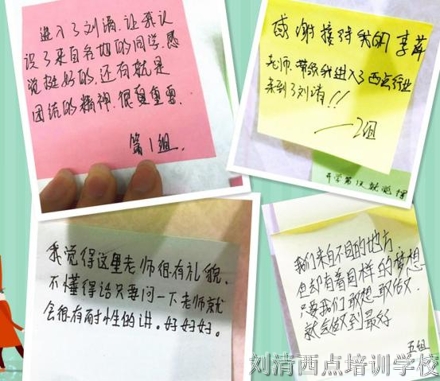 进入了刘清,让我认
识了来自各地的同学,感
觉挺好的,还有就是
团结的精神.很重要.
第1组.
感谢接待我的李萍
老师.带领我进入了西点行业
来到了刘清!!
——2组
我觉得这里老师很有礼貌.
不懂得话只要问一下老师就
会很有耐性的讲.好好好.
我们来自不同的地方,
但却有着同样的梦想
只要我们敢想敢做
就能做到最好
五组
刘清西点培训学校